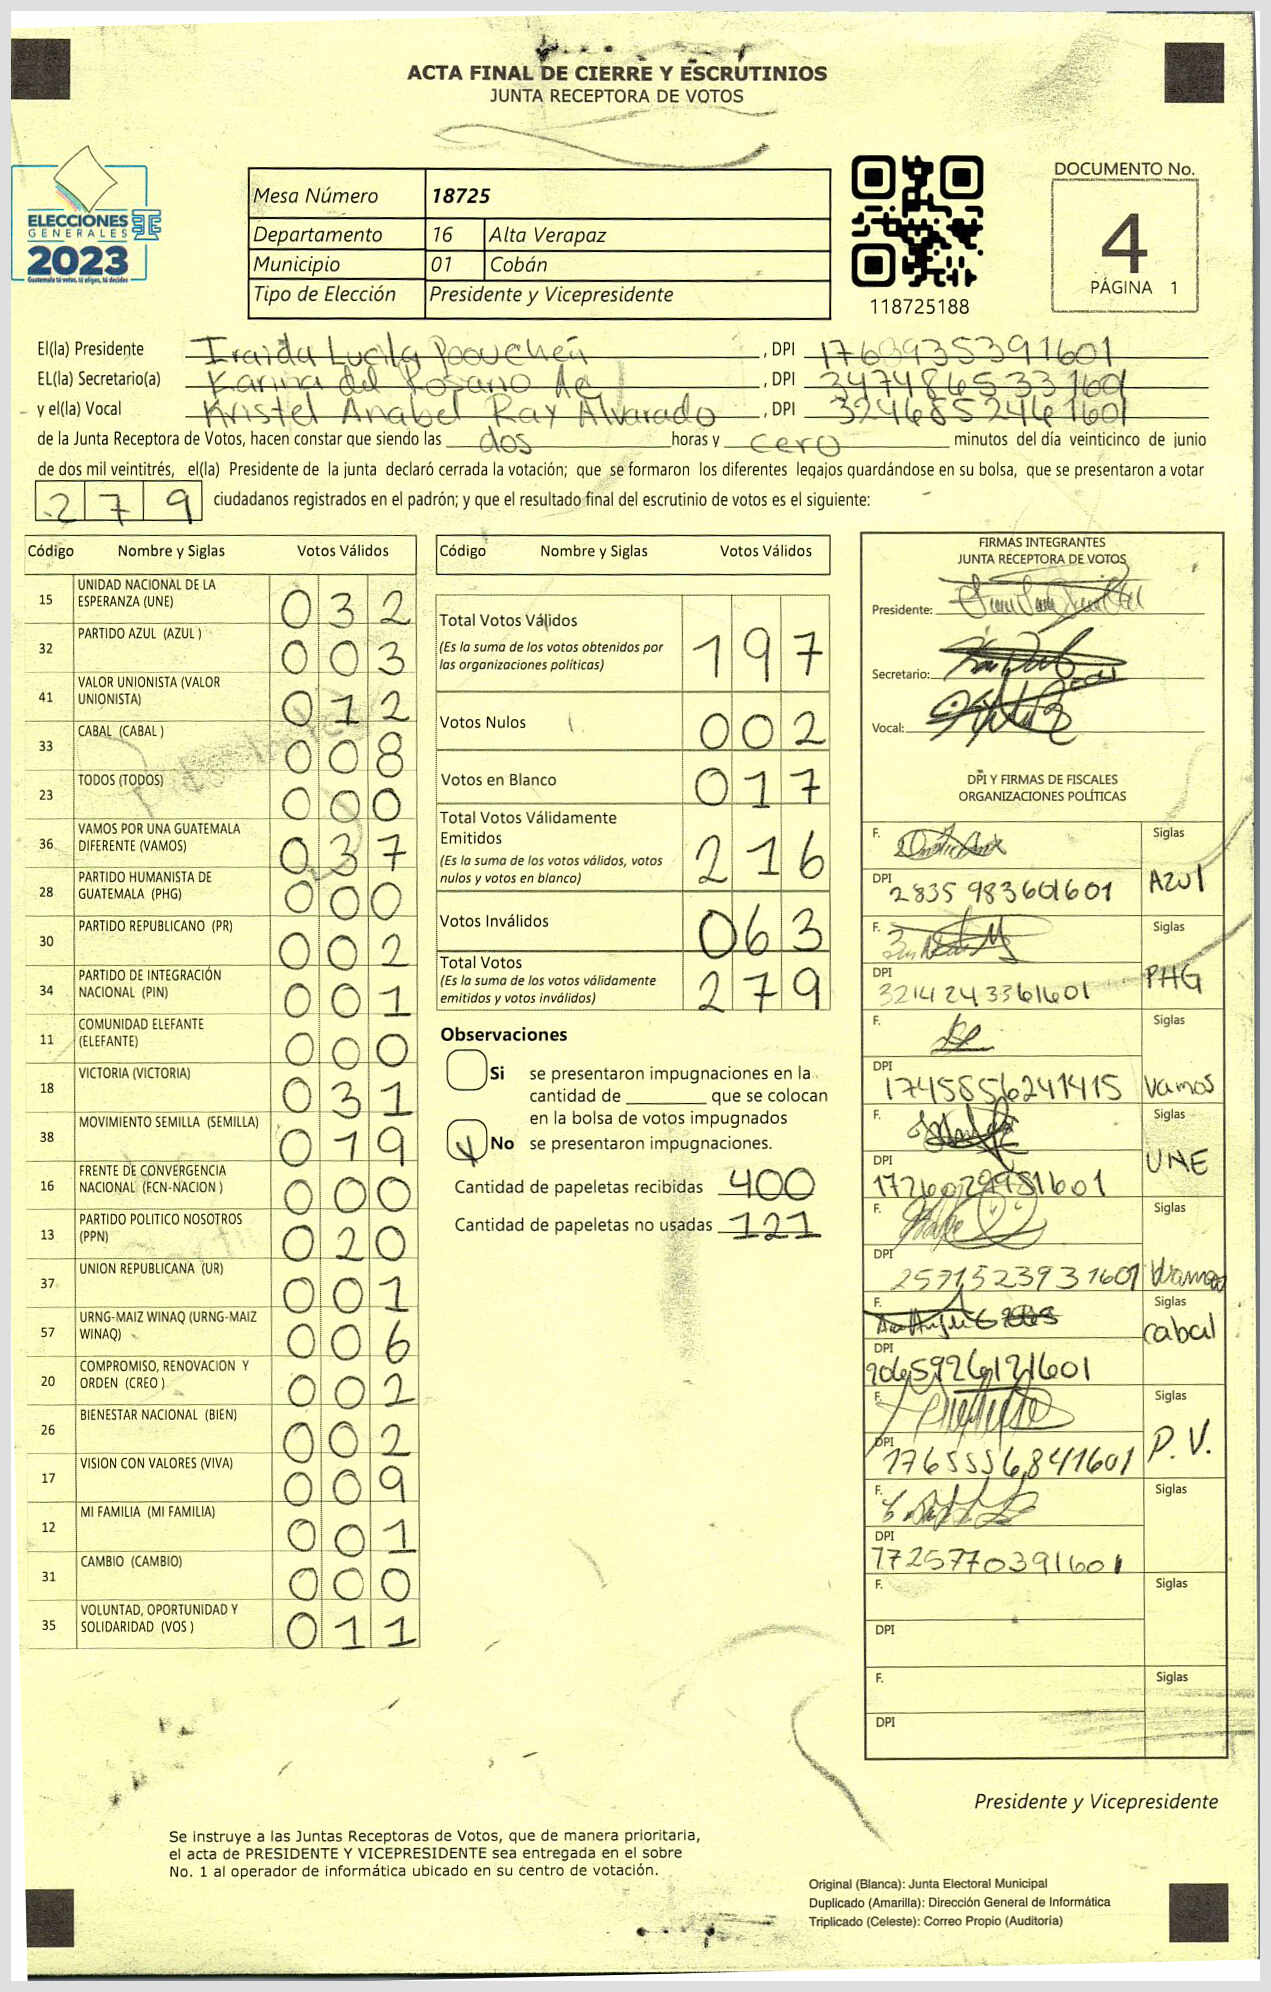 ACTA FINAL DE CIERRE Y ESCRUTINIOS
JUNTA RECEPTORA DE VOTOS
ELECCIONES
GENERALES
2023
Guatemala tú votas, tú eliges, tú decides
Mesa Número 18725
Departamento 16 Alta Verapaz
Municipio 01 Cobán
Tipo de Elección Presidente y Vicepresidente
118725188
DOCUMENTO No.
4
PÁGINA 1
El(la) Presidente Iraida Lucila , DPI 1763935391601
EL(la) Secretario(a) Karina del Rosario Ac , DPI 34748645331601
y el(la) Vocal Kristel Anabel Ray Alvarado , DPI 3246852461601
de la Junta Receptora de Votos, hacen constar que siendo las dos horas y cero minutos del día veinticinco de junio
de dos mil veintitrés, el(la) Presidente de la junta declaró cerrada la votación; que se formaron los diferentes legajos quardándose en su bolsa, que se presentaron a votar
279 ciudadanos registrados en el padrón; y que el resultado final del escrutinio de votos es el siguiente:
Código Nombre y Siglas Votos Válidos
15 UNIDAD NACIONAL DE LA ESPERANZA (UNE) 032
32 PARTIDO AZUL (AZUL ) 003
41 VALOR UNIONISTA (VALOR UNIONISTA) 012
33 CABAL (CABAL ) 008
23 TODOS (TODOS) 000
36 VAMOS POR UNA GUATEMALA DIFERENTE (VAMOS) 037
28 PARTIDO HUMANISTA DE GUATEMALA (PHG) 000
30 PARTIDO REPUBLICANO (PR) 002
34 PARTIDO DE INTEGRACIÓN NACIONAL (PIN) 001
11 COMUNIDAD ELEFANTE (ELEFANTE) 000
18 VICTORIA (VICTORIA) 031
38 MOVIMIENTO SEMILLA (SEMILLA) 019
16 FRENTE DE CONVERGENCIA NACIONAL (FCN-NACION ) 000
13 PARTIDO POLITICO NOSOTROS (PPN) 020
37 UNION REPUBLICANA (UR) 001
57 URNG-MAIZ WINAQ (URNG-MAIZ WINAQ) 006
20 COMPROMISO, RENOVACION Y ORDEN (CREO ) 002
26 BIENESTAR NACIONAL (BIEN) 002
17 VISION CON VALORES (VIVA) 009
12 MI FAMILIA (MI FAMILIA) 001
31 CAMBIO (CAMBIO) 000
35 VOLUNTAD, OPORTUNIDAD Y SOLIDARIDAD (VOS ) 011
Código Nombre y Siglas Votos Válidos
Total Votos Válidos 197
(Es la suma de los votos obtenidos por
las organizaciones políticas)
Votos Nulos 002
Votos en Blanco 017
Total Votos Válidamente
Emitidos 216
(Es la suma de los votos válidos, votos
nulos y votos en blanco)
Votos Inválidos 063
Total Votos 279
(Es la suma de los votos válidamente
emitidos y votos inválidos)
Observaciones
Si se presentaron impugnaciones en la
cantidad de ________ que se colocan
en la bolsa de votos impugnados
No se presentaron impugnaciones.
Cantidad de papeletas recibidas 400
Cantidad de papeletas no usadas 121
FIRMAS INTEGRANTES
JUNTA RECEPTORA DE VOTOS
Presidente:
Secretario:
Vocal:
DPI Y FIRMAS DE FISCALES
ORGANIZACIONES POLÍTICAS
F. Siglas
DPI 2835 983601601 AZUl
F. Siglas
DPI 3214243361601 PHG
F. Siglas
DPI 1745856241415 Vamos
F. Siglas
DPI 1726029951601 UNE
F. Siglas
DPI 2571523931601 Vamos
F. Siglas
DPI 9065926121601 cabal
F. Siglas
DPI 1765556841601 P.V.
F. Siglas
DPI 1725770391601
F. Siglas
DPI
F. Siglas
DPI
Presidente y Vicepresidente
Se instruye a las Juntas Receptoras de Votos, que de manera prioritaria,
el acta de PRESIDENTE Y VICEPRESIDENTE sea entregada en el sobre
No. 1 al operador de informática ubicado en su centro de votación.
Original (Blanca): Junta Electoral Municipal
Duplicado (Amarilla): Dirección General de Informática
Triplicado (Celeste): Correo Propio (Auditoría)